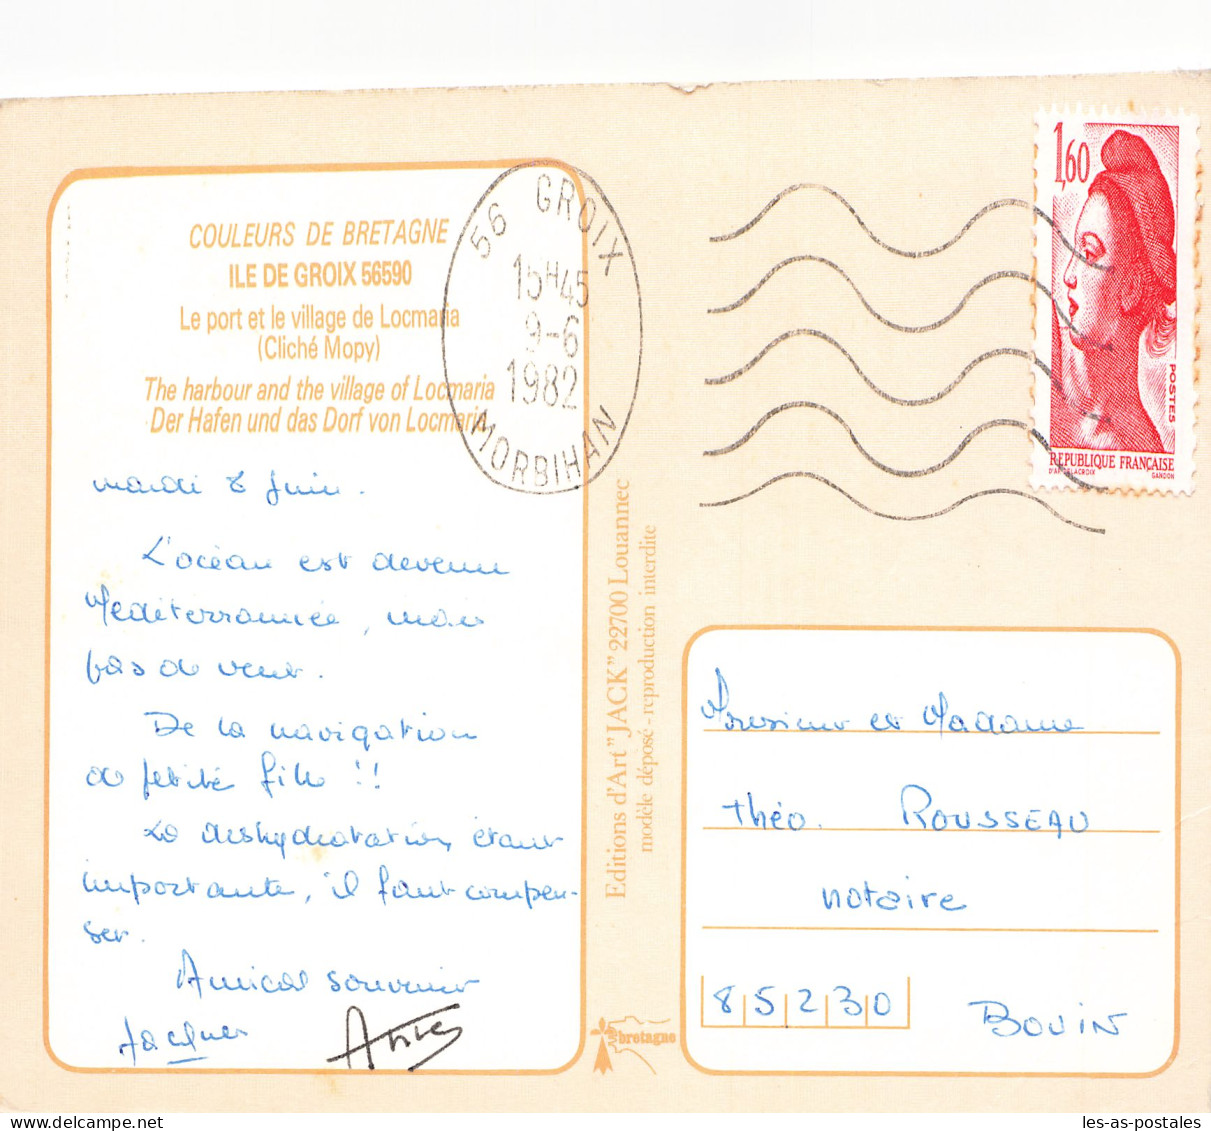 COULEURS DE BRETAGNE
ILE DE GROIX 56590
Le port et le village de Locmaria
(Cliché Mopy)
The harbour and the village of Locmaria
Der Hafen und das Dorf von Locmaria
56 GROIX
15H45
9-6
1982
MORBIHAN
1,60
POSTES
REPUBLIQUE FRANÇAISE
D'AP. DELACROIX GANDON
mardi 8 Juin.
L'océan est devenu
Méditerrannée, mais
pas de vent.
De la navigation
de petite fille !!
La deshydratation étant
importante, il faut compen-
ser.
Amical souvenir
Jacques
Editions d'Art "JACK" 22700 Louannec
modèle déposé - reproduction interdite
bretagne
Monsieur et Madame
Théo. ROUSSEAU
notaire
85230 BOUIN
les-as-postales